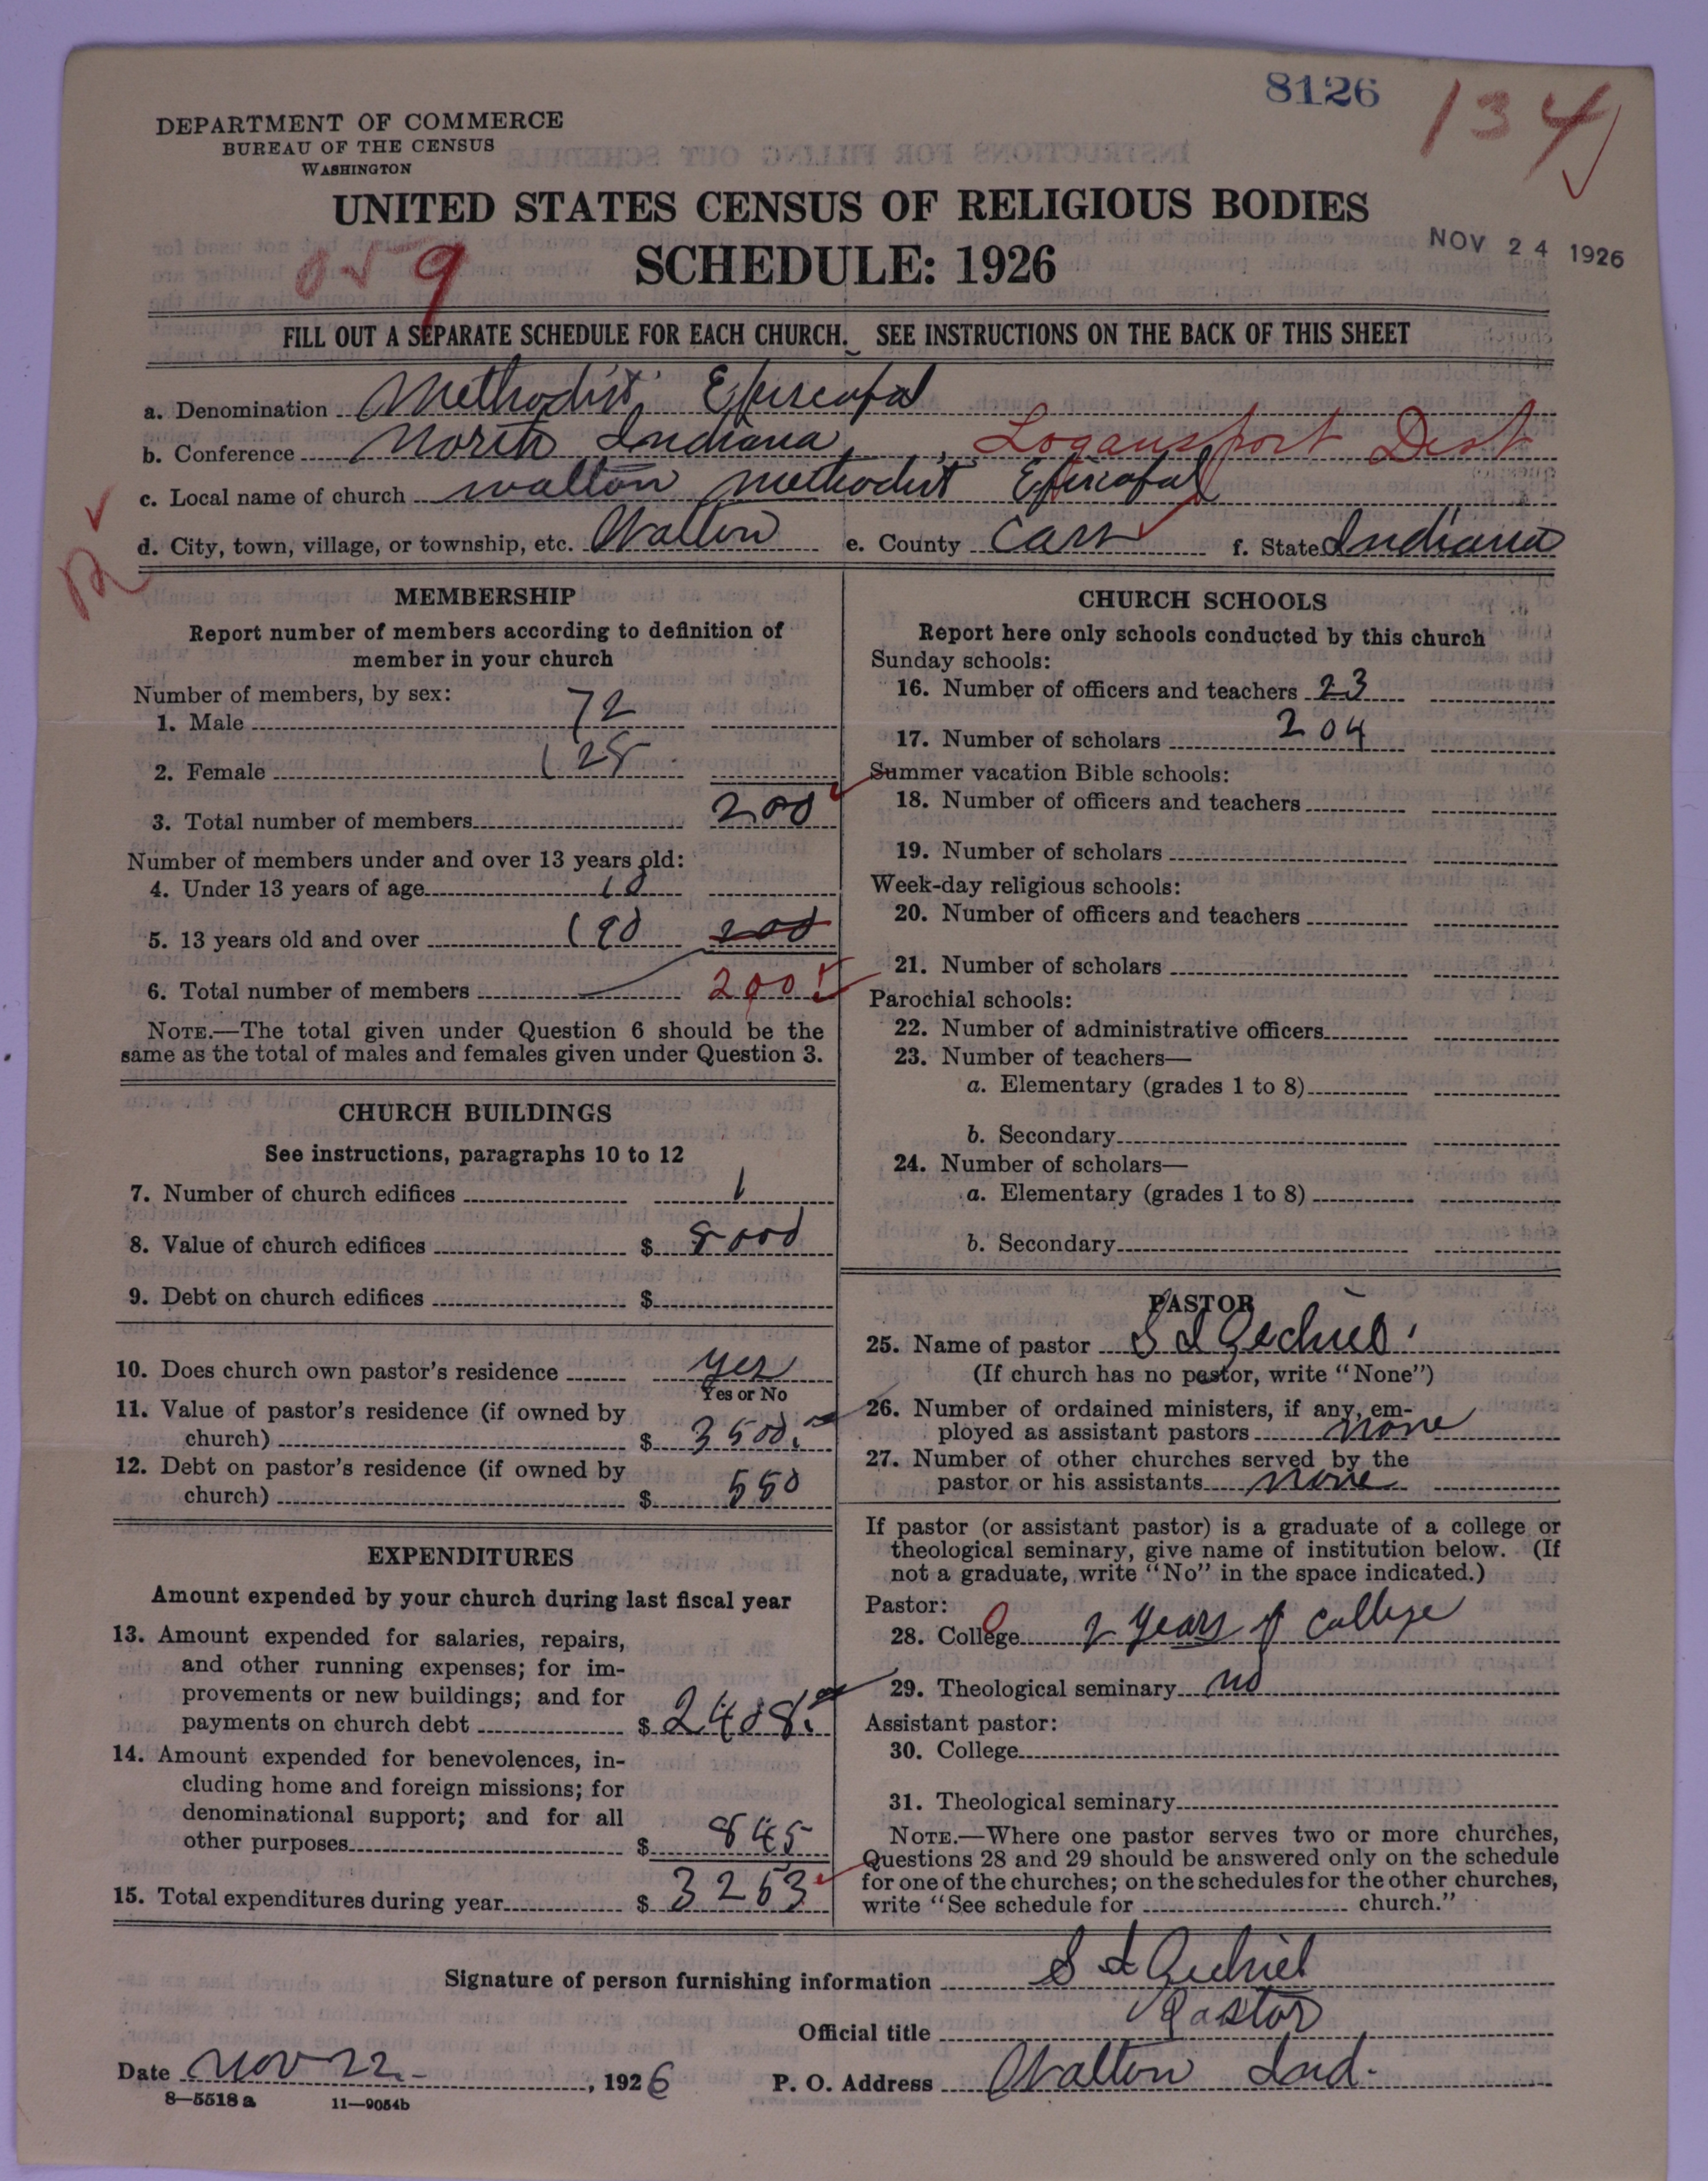 8126
134
DEPARTMENT OF COMMERCE
BUREAU OF THE CENSUS
WASHINGTON
UNITED STATES CENSUS OF RELIGIOUS BODIES
SCHEDULE: 1926
NOV 24 1926
9
FILL OUT A SEPARATE SCHEDULE FOR EACH CHURCH. SEE INSTRUCTIONS ON THE BACK OF THIS SHEET
a. Denomination Methodist Episcopal
b. Conference North Indiana, Logansport Dist
c. Local name of church Walton Methodist Episcopal
d. City, town, village, or township, etc. Walton e. County Cass f. State Indiana
MEMBERSHIP
Report number of members according to definition of
member in your church
Number of members, by sex:
1. Male 72
2. Female 128
3. Total number of members 200
Number of members under and over 13 years old:
4. Under 13 years of age 10
5. 13 years old and over 190 200
6. Total number of members 200
NOTE.—The total given under Question 6 should be the
same as the total of males and females given under Question 3.
CHURCH BUILDINGS
See instructions, paragraphs 10 to 12
7. Number of church edifices 1
8. Value of church edifices $ 8000
9. Debt on church edifices $
10. Does church own pastor's residence yes
Yes or No
11. Value of pastor's residence (if owned by
church) $ 3500.
12. Debt on pastor's residence (if owned by
church) $ 550
EXPENDITURES
Amount expended by your church during last fiscal year
13. Amount expended for salaries, repairs,
and other running expenses; for im-
provements or new buildings; and for
payments on church debt $ 2408.
14. Amount expended for benevolences, in-
cluding home and foreign missions; for
denominational support; and for all
other purposes $ 845
15. Total expenditures during year $ 3253
CHURCH SCHOOLS
Report here only schools conducted by this church
Sunday schools:
16. Number of officers and teachers 23
17. Number of scholars 204
Summer vacation Bible schools:
18. Number of officers and teachers
19. Number of scholars
Week-day religious schools:
20. Number of officers and teachers
21. Number of scholars
Parochial schools:
22. Number of administrative officers
23. Number of teachers—
a. Elementary (grades 1 to 8)
b. Secondary
24. Number of scholars—
a. Elementary (grades 1 to 8)
b. Secondary
PASTOR
25. Name of pastor S I
(If church has no pastor, write "None")
26. Number of ordained ministers, if any, em-
ployed as assistant pastors none
27. Number of other churches served by the
pastor or his assistants none
If pastor (or assistant pastor) is a graduate of a college or
theological seminary, give name of institution below. (If
not a graduate, write "No" in the space indicated.)
Pastor:
28. College 2 years of college
29. Theological seminary no
Assistant pastor:
30. College
31. Theological seminary
NOTE.—Where one pastor serves two or more churches,
Questions 28 and 29 should be answered only on the schedule
for one of the churches; on the schedules for the other churches,
write "See schedule for church."
Signature of person furnishing information S I
Official title Pastor
Date Nov 22 - , 1926 P. O. Address Walton Ind.
8—5518 a 11—9054b